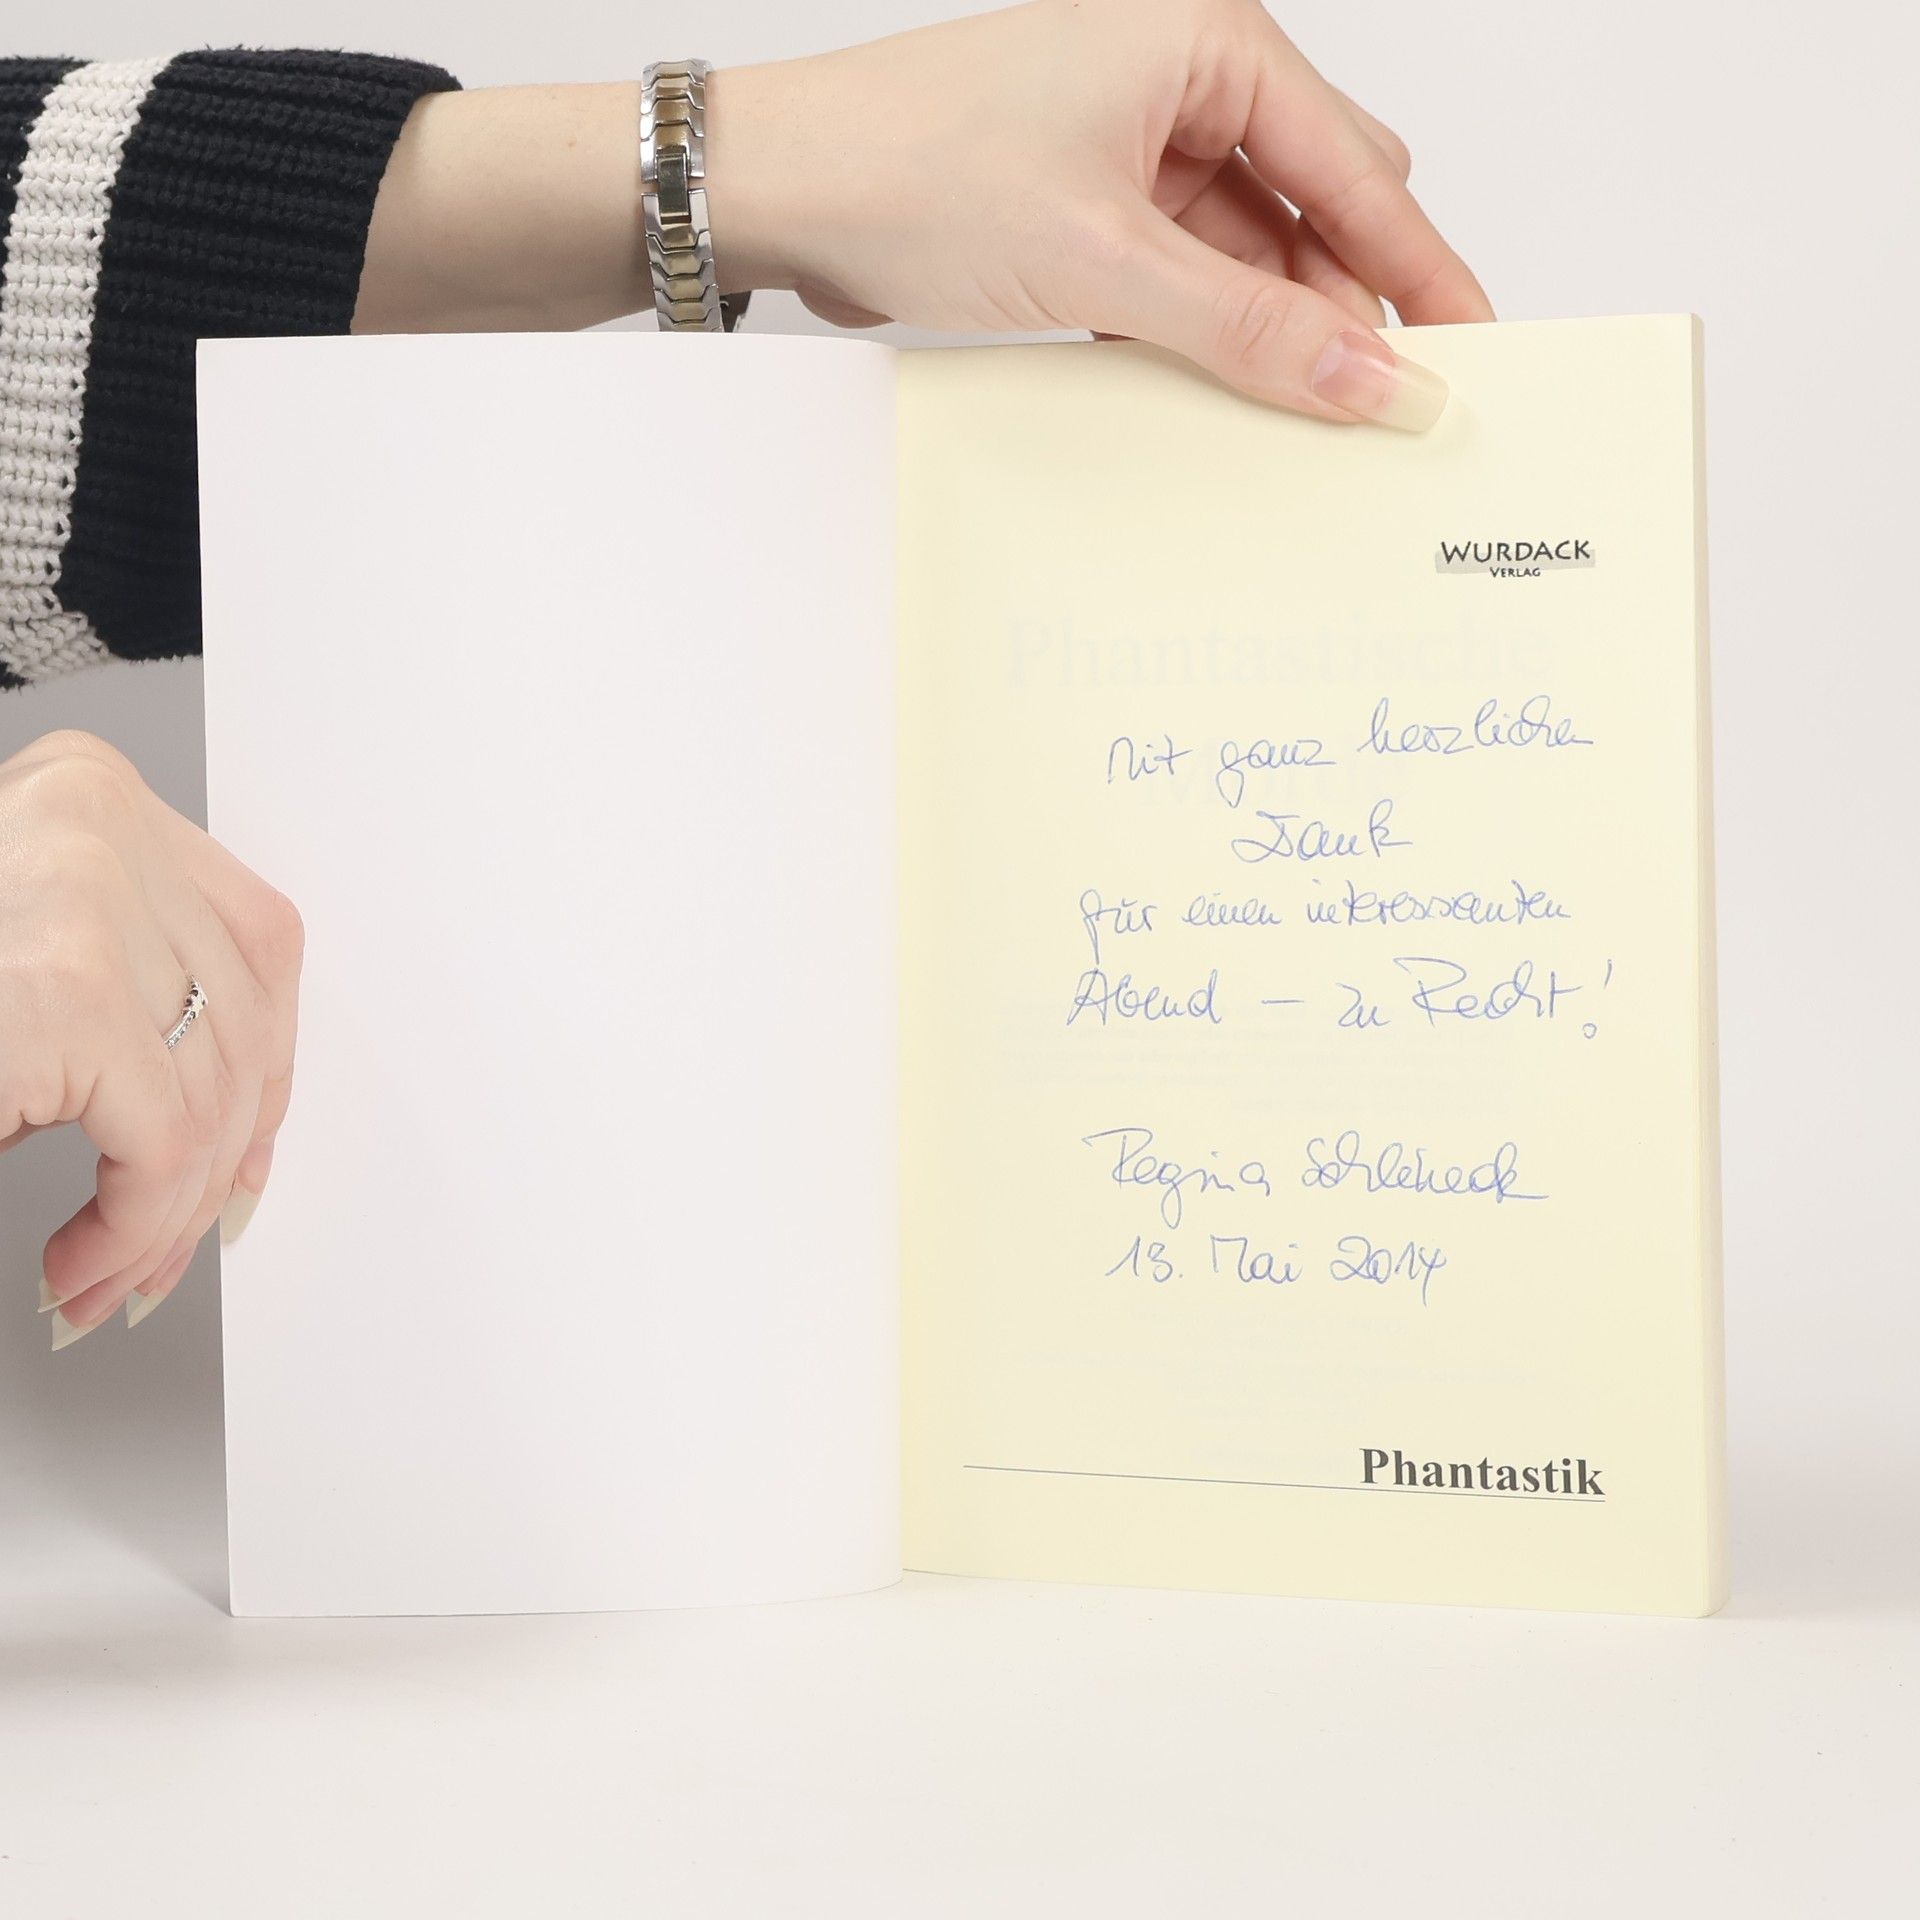 WURDACK
VERLAG
Phantastische
Mit ganz herzlichen
Dank
für einen interessanten
Abend – zu Recht!
Regina Schleheck
13. Mai 2014
Phantastik